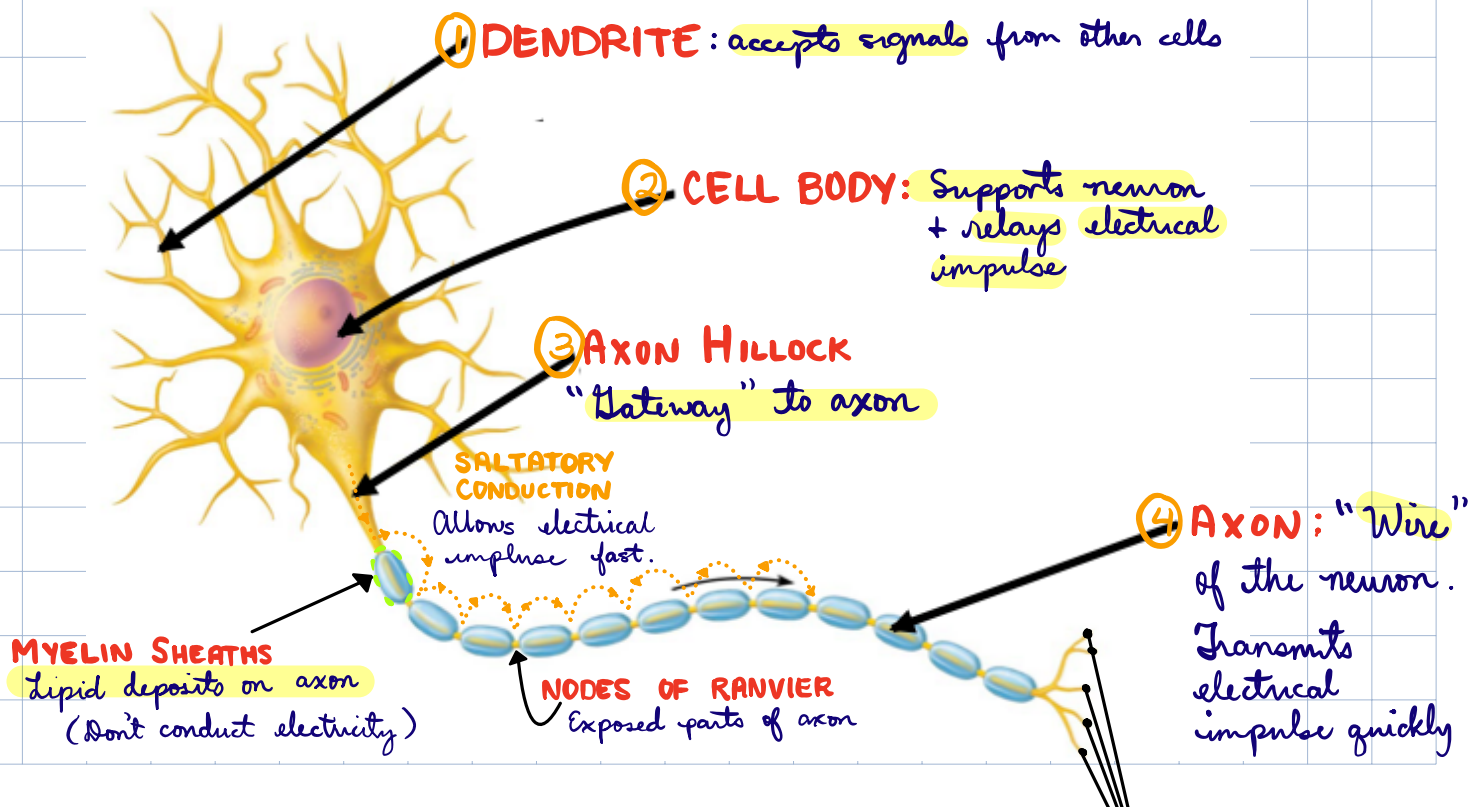 ① DENDRITE: accepts signals from other cells
② CELL BODY: Supports neuron
+ relays electrical
impulse
③ AXON HILLOCK
"Gateway" to axon
SALTATORY
CONDUCTION
Allows electrical
implnse fast.
④ AXON: "Wire"
of the neuron.
Transmits
electrical
impulse quickly
MYELIN SHEATHS
Lipid deposits on axon
(Don't conduct electricity)
NODES OF RANVIER
Exposed parts of axon